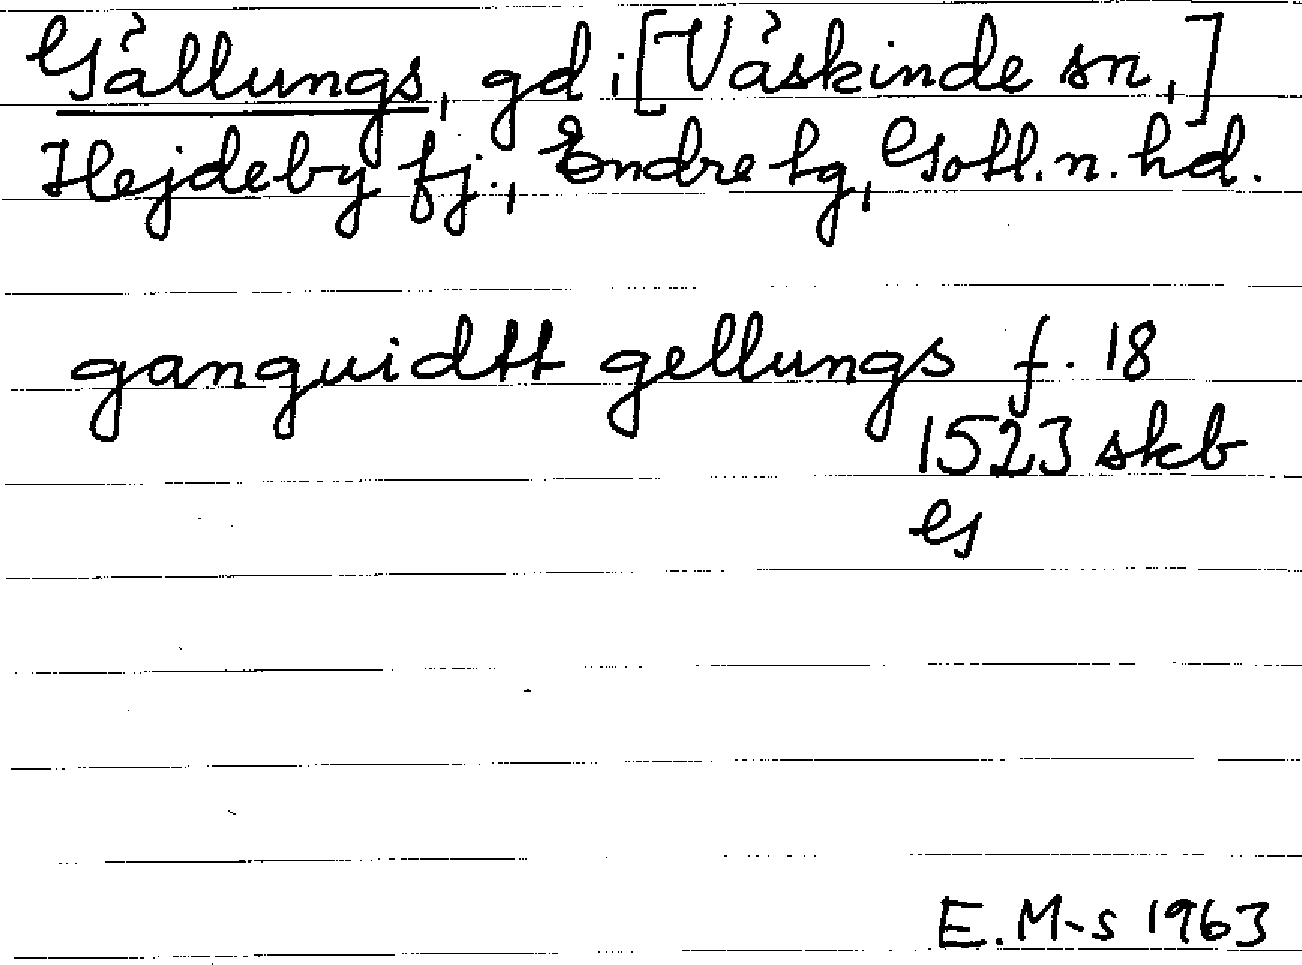 Gällungs, gd i [Väskinde sn,]
Hejdeby fj., Endre tg, Gotl. n. hd.
ganguidtt gellungs f. 18
1523 skb
G
E. M-s 1963